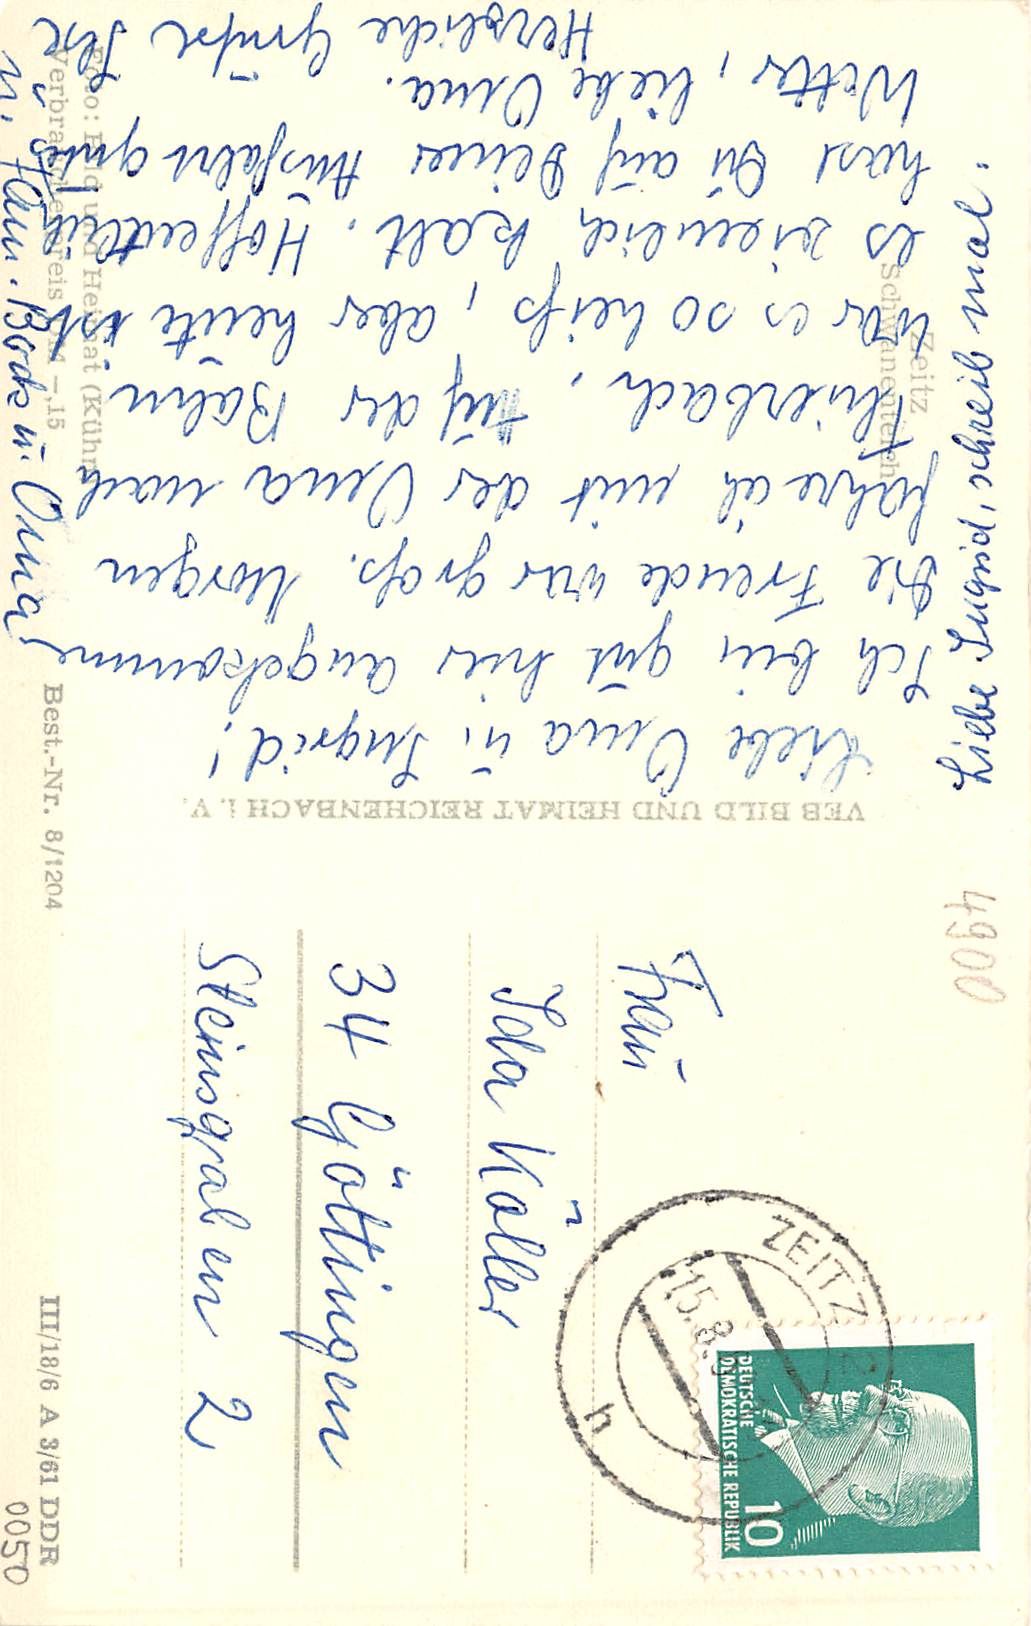 Zeitz
Schwanenteich
Liebe Oma u. Ingrid!
Ich bin gut hier angekommen
Die Freude war groß. Morgen
fahre ich mit der Oma nach
Thierbach, Auf der Bahn
war es so heiß, aber heute ist
es ziemlich kalt. Hoffentlich
hast Du auf Deiner Ausfahrt gutes
Wetter, liebe Oma.
Herzliche Grüße
u. Fam. Bock u. Oma
Liebe Ingrid, schreib mal.
Foto: Bild und Heimat (Kühn)
Verbraucherpreis DM -,15
Best.-Nr. 8/1204
III/18/6 A 3/61 DDR
0050
VEB BILD UND HEIMAT REICHENBACH i. V.
4900
Frau
Ida Köller
34 Göttingen
Steinsgraben 2
ZEITZ
15.8.
h
DEUTSCHE
DEMOKRATISCHE REPUBLIK
10